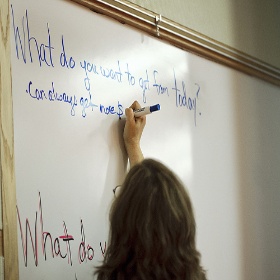 What do you want to get from today?
· Can always get more $
What do